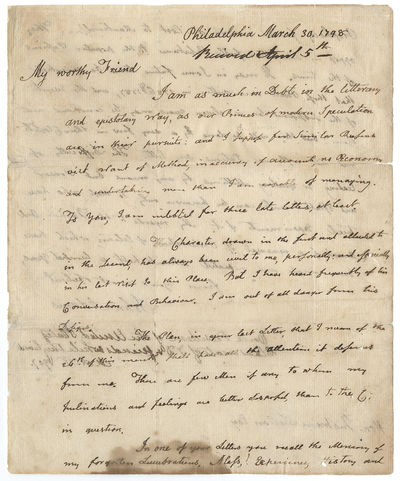 Philadelphia March 30. 1798
Received April 5th
My worthy Friend
I am as much in Debt in the litterary
and epistolary way, as our Princes of modern Speculation
are in their pursuits: and I suppose for Similar Reasons
vizt Want of Method, inaccuracy of accounts as
and undertaking more than I am capable of managing.
To You, I am indebted for three late Letters, at least.
The Character drawn in the first and alluded to
in the Second, has always been civil to me, personally: and especially
in his last visit to this Place. But I have heard frequently of his
Conversation and Behaviour. I am out of all danger from his
The Plan, in your last Letter that I mean of the
26th of this month shall have all the attention it deserves
from me. There are few Men if any to whom my
Inclinations and feelings are better disposed, than to the
in question.
In one of your Letters you recall the Memory of
my forgotten Lucubrations, Alass! Experience, History and